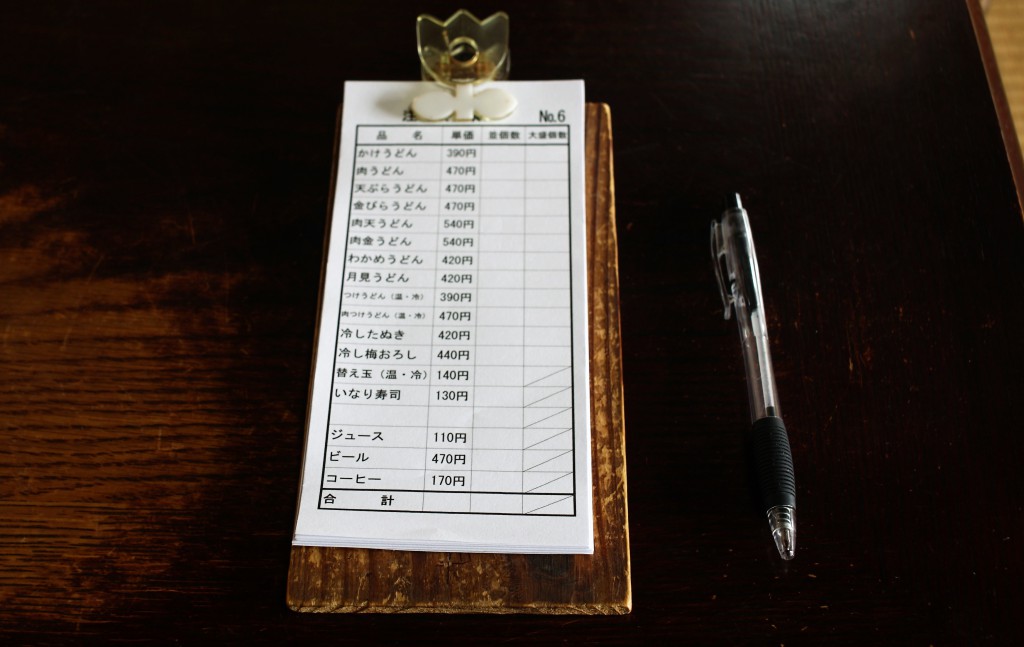 注 No.6
品 名 単価 並個数 大盛個数
かけうどん 390円
肉うどん 470円
天ぷらうどん 470円
金ぴらうどん 470円
肉天うどん 540円
肉金うどん 540円
わかめうどん 420円
月見うどん 420円
つけうどん（温・冷） 390円
肉つけうどん（温・冷） 470円
冷したぬき 420円
冷し梅おろし 440円
替え玉（温・冷） 140円
いなり寿司 130円
ジュース 110円
ビール 470円
コーヒー 170円
合 計